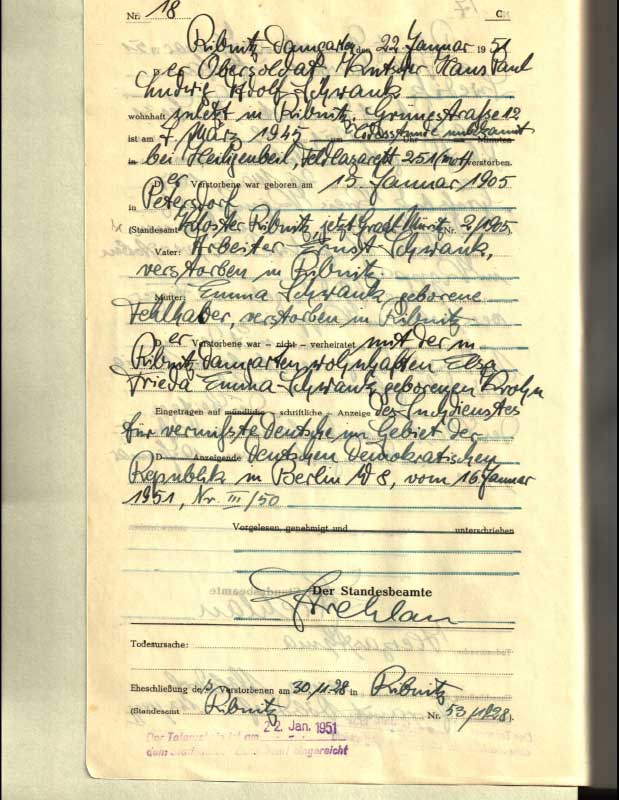 Nr. 18 C
Ribnitz-Damgarten, den 22. Januar 1951
Der Obersoldat, Kutscher Hans Paul
Ludwig Adolf Schwank
wohnhaft zuletzt in Ribnitz, Grünestraße 12
ist am 7. März 1945 um Todesstunde unbekannt Uhr Minuten
in bei Heiligenbeil, Feldlazarett 251 (mot) verstorben.
Der Verstorbene war geboren am 15. Januar 1905
in Petersdorf
(Standesamt Kloster Ribnitz, jetzt Groß Müritz Nr. 2/1905)
Vater: Arbeiter Ernst Schwank,
verstorben in Ribnitz.
Mutter: Emma Schwank geborene
Fehlhaber, verstorben in Ribnitz
Der Verstorbene war – nicht – verheiratet mit der in
Ribnitz-Damgarten wohnhaften Elsa
Frieda Emma Schwank geborenen Krohn
Eingetragen auf mündliche – schriftliche – Anzeige des Suchdienstes
für vermißte Deutsche im Gebiet der
D Anzeigende Deutschen Demokratischen
Republik in Berlin W 8, vom 16. Januar
1951, Nr. III/50
Vorgelesen, genehmigt und unterschrieben
Der Standesbeamte
Strehlau
Todesursache:
Eheschließung des Verstorbenen am 30.11.28 in Ribnitz
(Standesamt Ribnitz Nr. 53/1928).
22. Jan. 1951